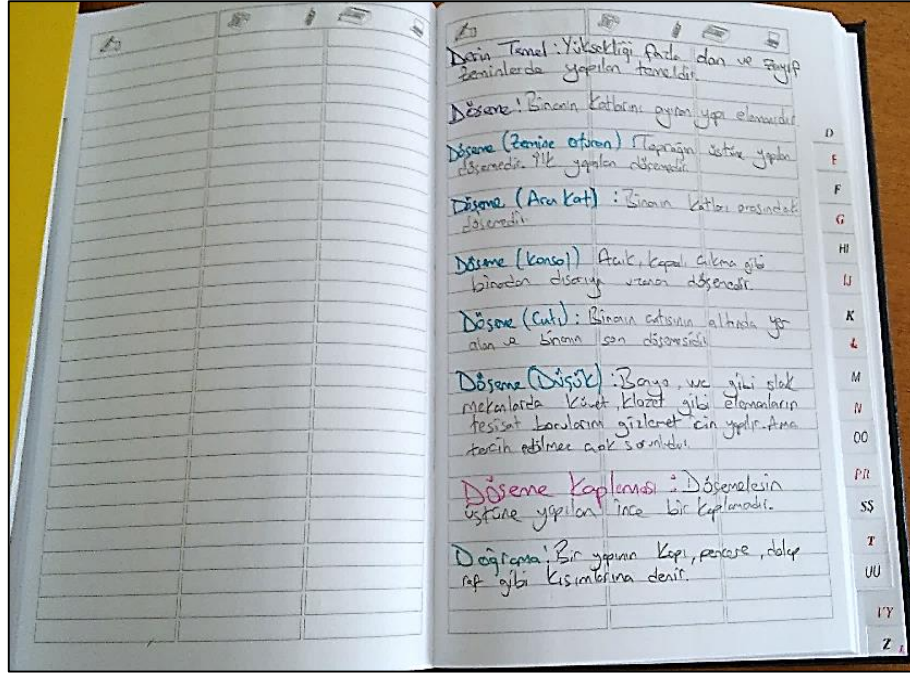 Derin Temel : Yüksekliği fazla olan ve zayıf
zeminlerde yapılan temeldir.
Döşeme : Binanın katlarını ayıran yapı elemanıdır.
Döşeme (Zemine oturan) : Toprağın üstüne yapılan
döşemedir. İlk yapılan döşemedir.
Döşeme (Ara Kat) : Binanın katları arasındaki
döşemedir.
Döşeme (Konsol) Açık, kapalı çıkma gibi
binadan dışarıya uzanan döşemedir.
Döşeme (Çatı) : Binanın çatısının altında yer
alan ve binanın son döşemesidir.
Döşeme (Düşük) : Banyo, wc gibi ıslak
mekanlarda küvet, klozet gibi elemanların
tesisat borularını gizlemek için yapılır. Ama
tercih edilmez çok sorunludur.
Döşeme Kaplaması : Döşemelesin
üstüne yapılan ince bir kaplamadır.
Doğrama : Bir yapının kapı, pencere, dolap
raf gibi kısımlarına denir.
D
E
F
G
HI
IJ
K
L
M
N
OÖ
PR
SŞ
T
UÜ
VY
Z